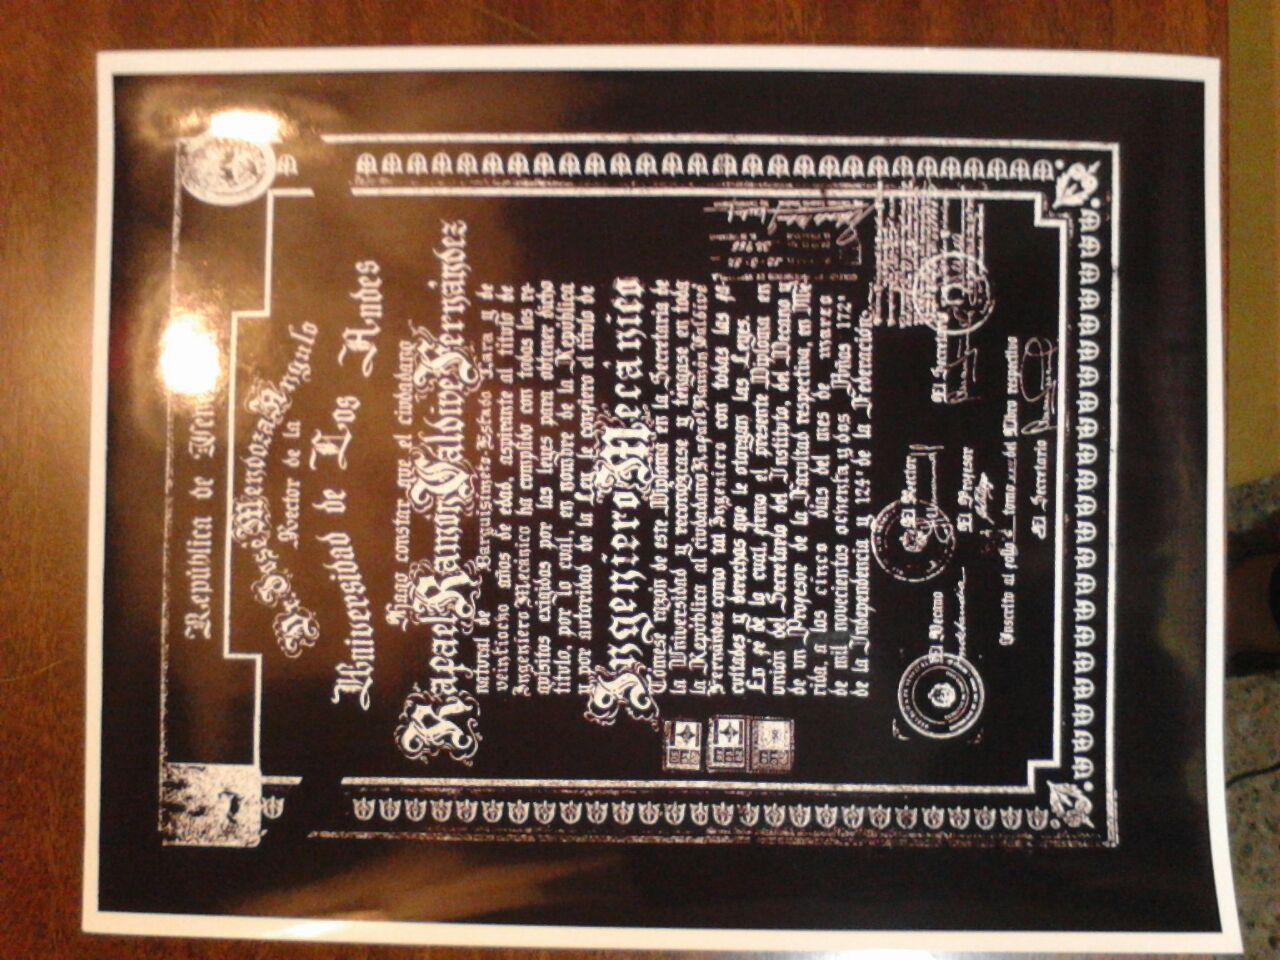 República de
Dr. José Mendoza Angulo
Rector de la
Universidad de Los Andes
Hago constar que el ciudadano
Rafael Ramón Valdivé Fernández
natural de Barquisimeto-Estado Lara y de
veintiocho años de edad, aspirante al título de
Ingeniero Mecánico ha cumplido con todos los re-
quisitos exigidos por las leyes para obtener dicho
título, por lo cual, en nombre de la República
y por autoridad de la Ley le confiero el título de
Ingeniero Mecánico
Tómese razón de este Diploma en la Secretaría de
la Universidad y reconózcase y téngase en toda
la República al ciudadano Rafael Ramón Valdivé
Fernández como tal Ingeniero con todas las fa-
cultades y derechos que le otorgan las Leyes.
En fé de lo cual, firmo el presente Diploma en
unión del Secretario del Instituto, del Decano y
de un Profesor de la Facultad respectiva, en Mé-
rida, a los cinco días del mes de marzo
de mil novecientos ochenta y dos. Años 172°
de la Independencia y 124° de la Federación.
El Decano El Rector El Secretario
El Profesor
Inscrito al folio tomo del Libro respectivo
El Secretario